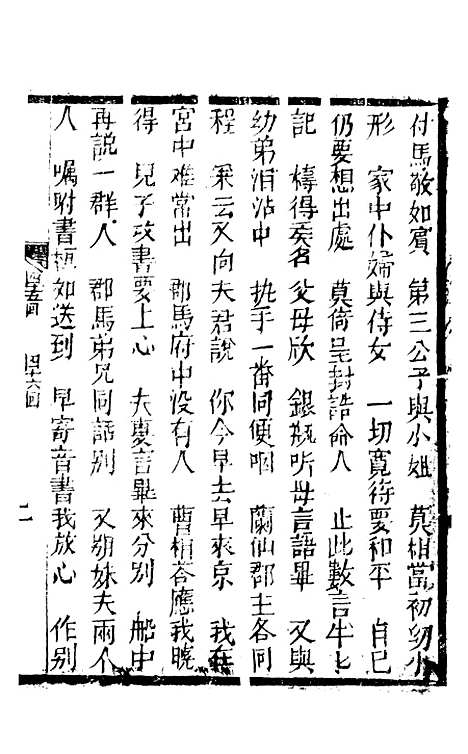 付馬敬如賓　第三公子與小姐　莫相當初幼小
形　家中仆婦與侍女　一切寬待要和平　自己
仍要想出處　莫倚呈封誥命人　止此數言牛七
記　檮得矣名父母欣　銀瓶听母言語畢　又與
幼弟淚沾巾　执手一番同便咽　蘭仙郡主各同
程　采云又向夫君說　你今早去早來京　我在
宮中难常出　郡馬府中没有人　曹相荅應我曉
得　兒子攻書要上心　夫妻言畢來分别　船中
再説一群人　郡馬弟兄同話别　又朔妹夫兩个
人　嘱咐書
如送到　早寄音書我放心　作别
四十五回　四十六回　二